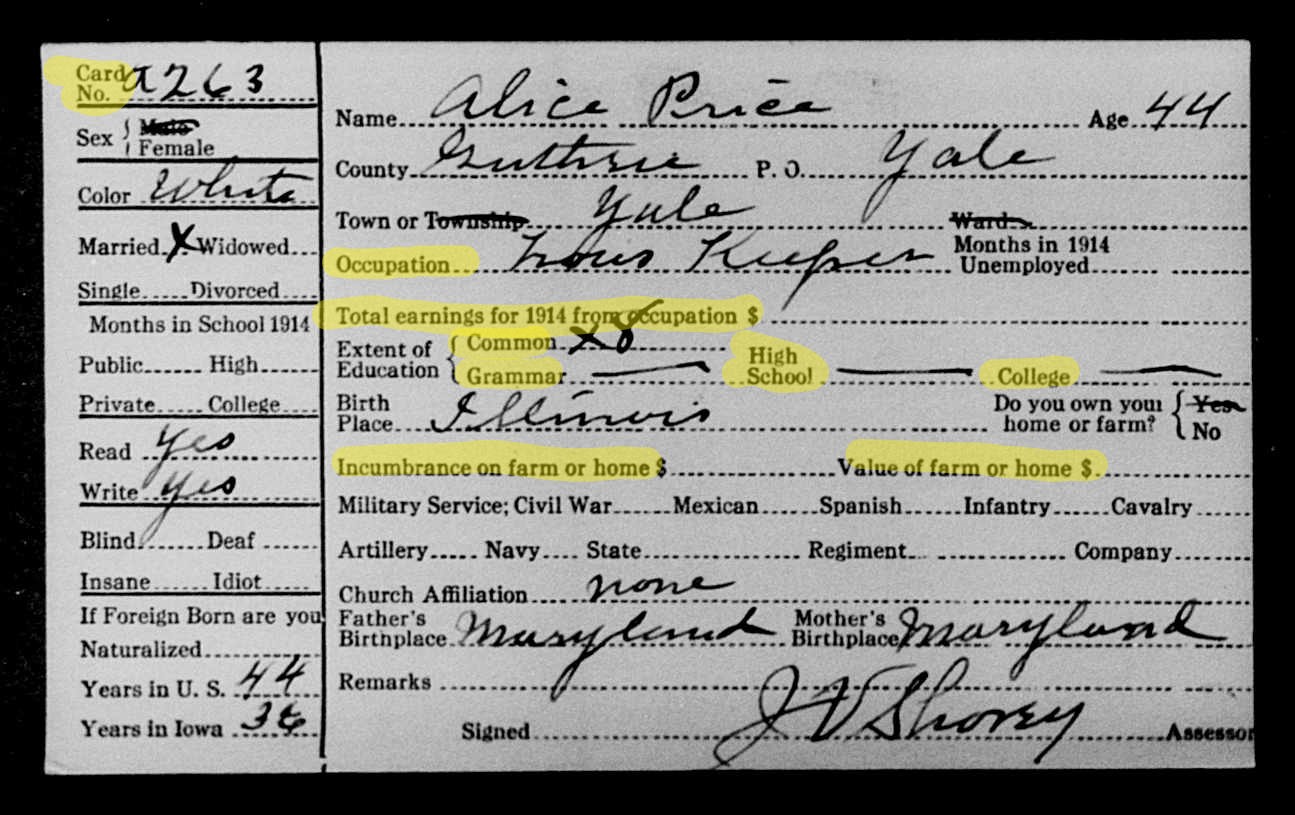 Card No. A263
Sex { Male
Female
Color White
Married X Widowed
Single Divorced
Months in School 1914
Public High
Private College
Read Yes
Write Yes
Blind Deaf
Insane Idiot
If Foreign Born are you
Naturalized
Years in U. S. 44
Years in Iowa 36
Name Alice Price Age 44
County Guthrie P. O. Yale
Town or Township Yale Ward
Occupation Hous Keeper Months in 1914 Unemployed
Total earnings for 1914 from occupation $
Extent of Education { Common X 8 High School — College —
Grammar —
Birth Place Illinois Do you own your home or farm? { Yes
No
Incumbrance on farm or home $ Value of farm or home $
Military Service; Civil War Mexican Spanish Infantry Cavalry
Artillery Navy State Regiment Company
Church Affiliation none
Father's Birthplace Maryland Mother's Birthplace Maryland
Remarks
Signed J V Shorey Assessor